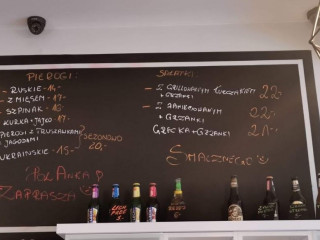 PIEROGI:
- RUSKIE - 14-
- Z MIĘSEM - 17-
- SZPINAK - 16-
- KURKA + JAJKO 17-
PIEROGI Z TRUSKAWKAMI
JAGODAMI
SEZONOWO
20,-
UKRAIŃSKIE - 15.-
POLANKA P
ZAPRASZA
SAŁATKI:
- Z GRILLOWANYM KURCZAKIEM
+ GRZANKI
22,-
- Z KAMEMBERTEM
+ GRZANKI
22,-
GRECKA + GRZANKI
21.-
SMACZNEGO